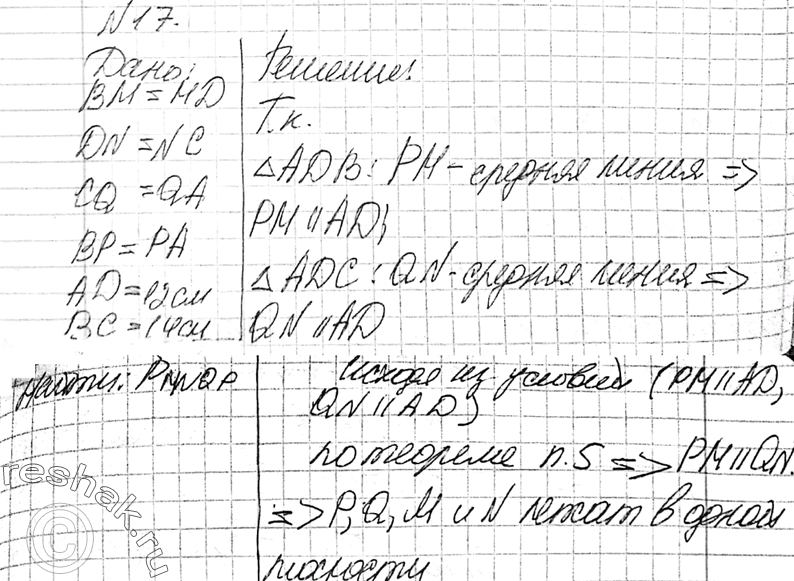 N17.
Дано:
BM = MD
DN = NC
CQ = QA
BP = PA
AD = 12 см
BC = 14 см
Найти: PMNQP
Решение:
Т.к.
△ADB: PM - средняя линия =>
PM || AD;
△ADC: QN - средняя линия =>
QN || AD
исходя из условий (PM || AD,
QN || AD)
по теореме п.5 => PM || QN.
=> P, Q, M и N лежат в одной
плоскости
reshak.ru